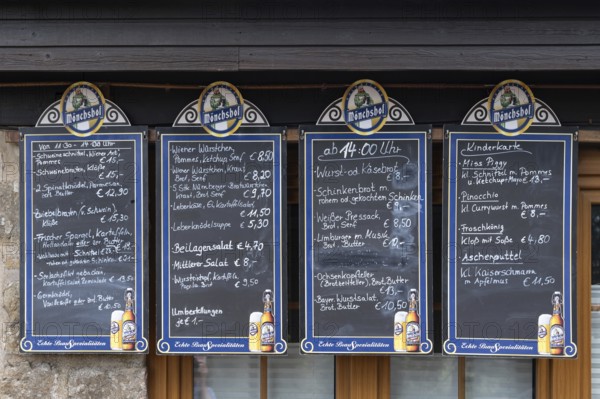 Mönchshof
Von 11:30 - 14:00 Uhr
Schweineschnitzel, Wiener Art
Pommes € 15,-
Schweinebraten, Klöße
€ 15,-
€ 12,90
Butter
Zwiebelbraten (v. Schwein)
Klöße € 15,30
Frischer Spargel, Kartoffeln,
Hollandaise oder zerl. Butter
€ 19,-
mit Schnitzel
Echte BierSpezialitäten
Mönchshof
Wiener Würstchen,
Pommes, Ketchup, Senf € 8,50
Wiener Würstchen, Kraut,
Brot, Senf € 8,20
5 Stk. Nürnberger Bratwürstchen
Kraut, Brot, Senf € 9,70
Leberkäse, Ei, Kartoffelsalat
€ 11,50
Leberknödelsuppe € 5,30
Beilagensalat € 4,70
Mittlerer Salat € 8,-
€ 9,50
Umbestellungen
je € 1,-
Echte BierSpezialitäten
Mönchshof
ab 14:00 Uhr
Wurst- od. Käsebrot
€ 8,-
Schinkenbrot m.
rohem od. gekochtem Schinken
€ 8,-
Weißer Pressack,
Brot, Senf € 8,50
Limburger m. Musik
Brot, Butter € 9,-
Brot, Butter
€ 8,-
Bayer. Wurstsalat,
Brot, Butter € 10,50
Echte BierSpezialitäten
Mönchshof
Kinderkarte
Miss Piggy
kl. Schnitzel m. Pommes
u. Ketchup + Mayo € 13,-
Pinocchio
kl. Currywurst m. Pommes
€ 8,-
Froschkönig
Kloß mit Soße € 4,80
Aschenputtel
kl. Kaiserschmarrn
m. Apfelmus € 10,50
Echte BierSpezialitäten